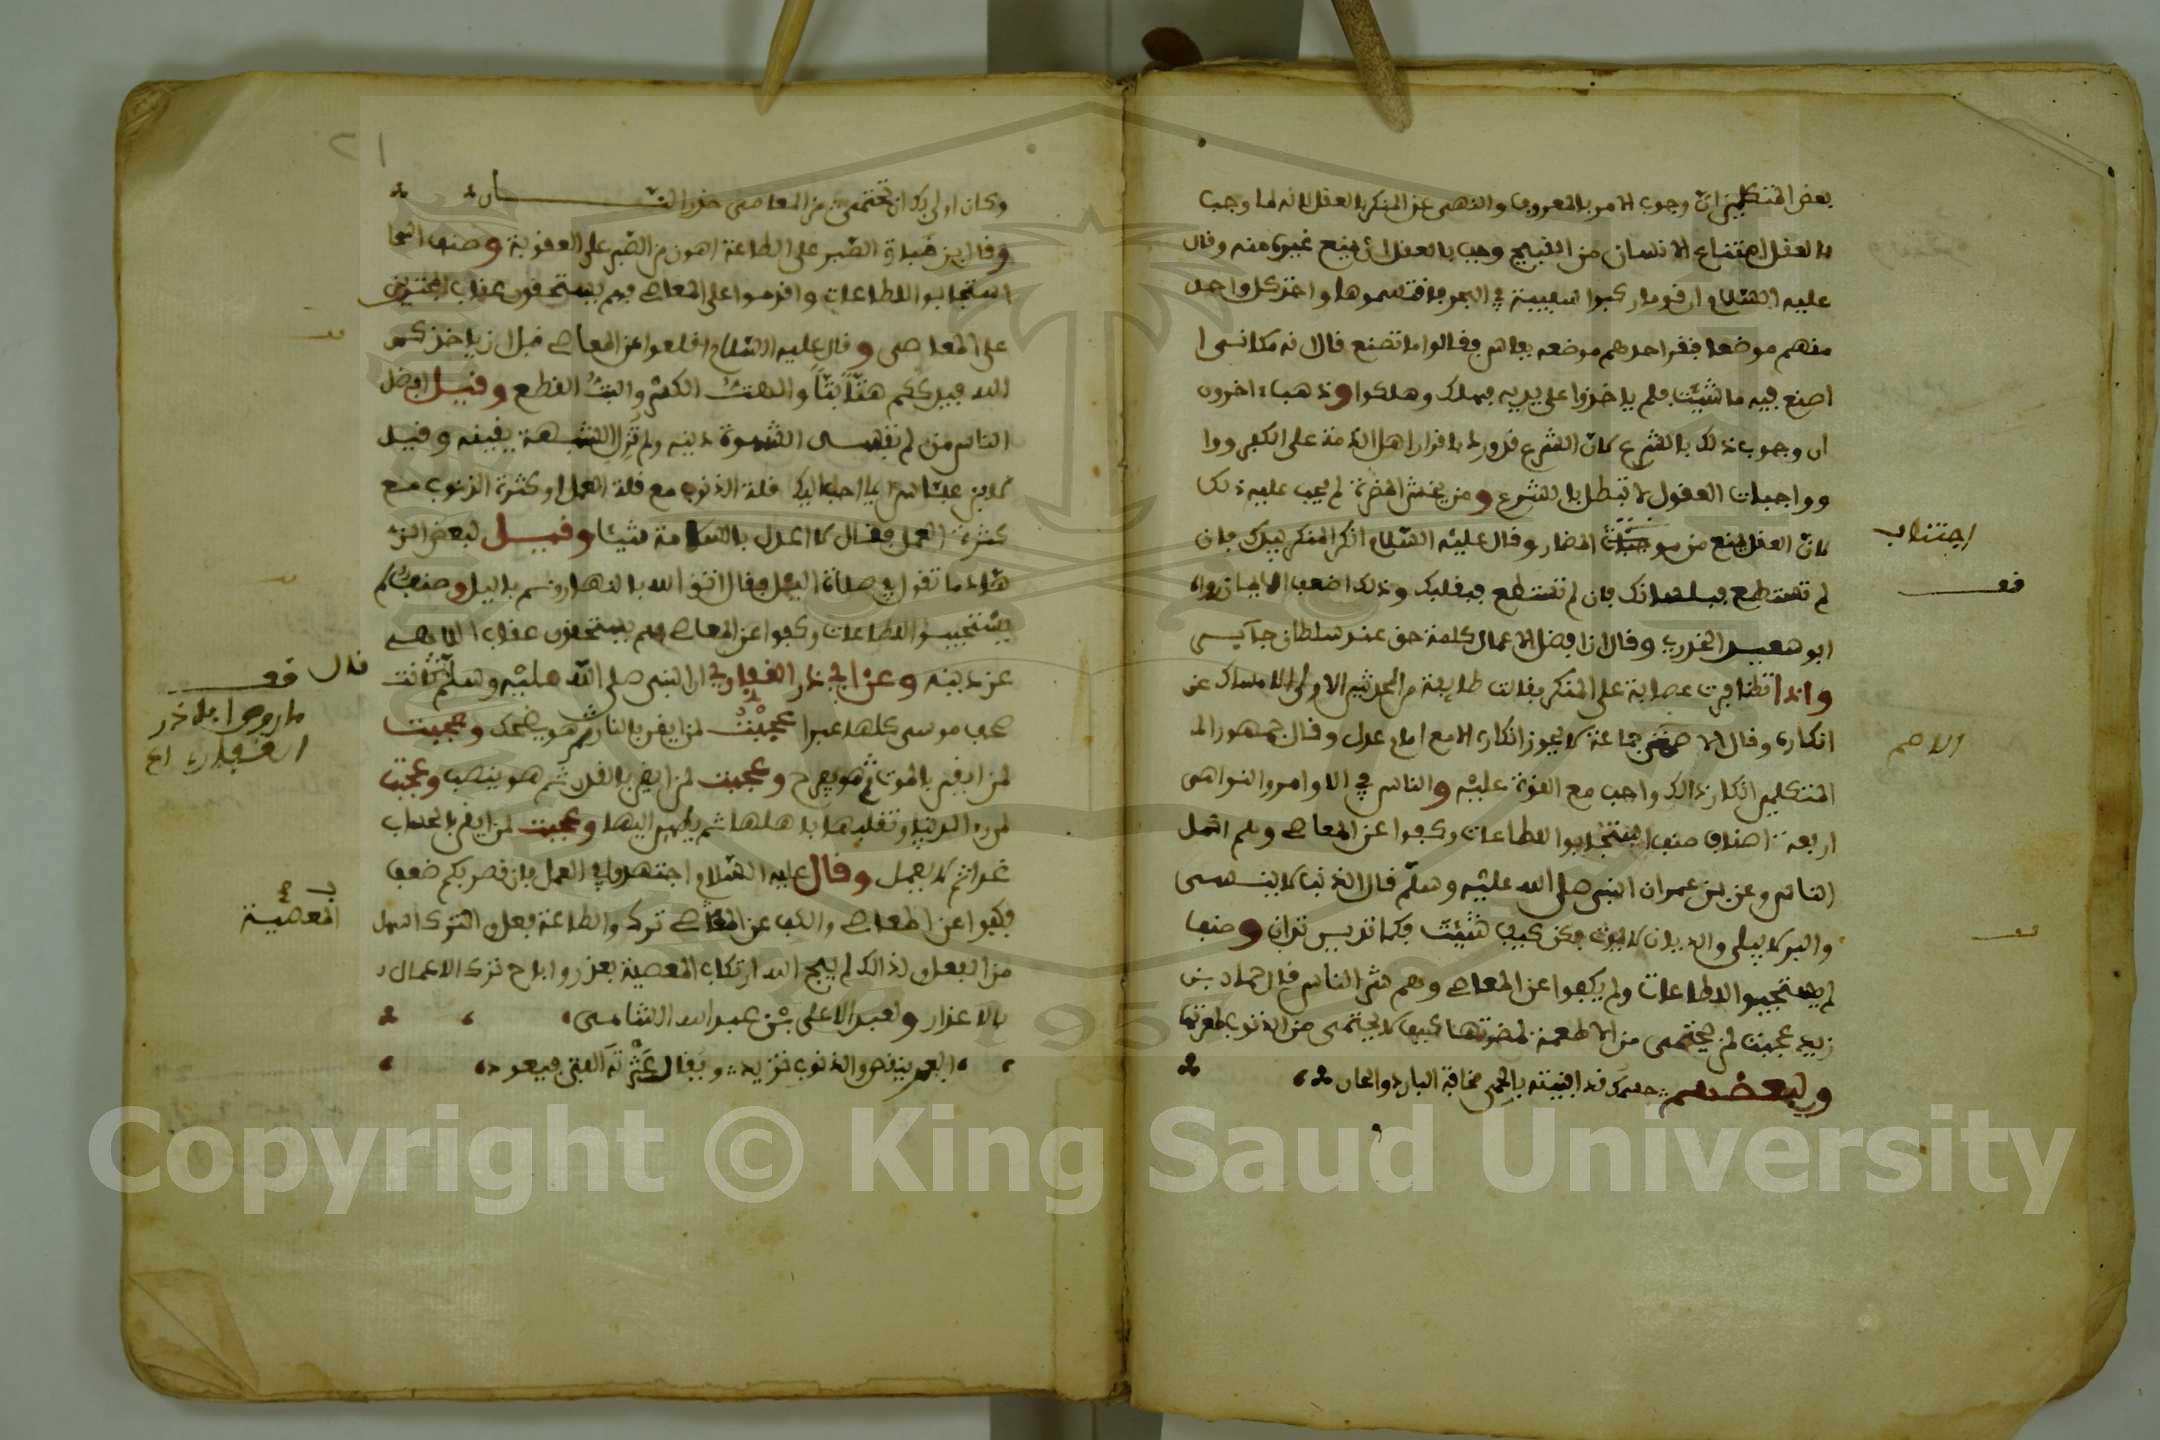 بعض المتكلمين ان وجوب الامر بالمعروف والنهى عن المنكر بالعقل لانه لما وجب
بالعقل امتناع الانسان من القبيح وجب بالعقل ان يمنع غيره منه وقال
عليه السلام ان قوما ركبوا سفينة في البحر فاقتسموها واخذ كل واحد
منهم موضعا فنقر احدهم موضعه بفاس فقالوا ما تصنع قال انه مكانى ا
اصنع فيه ما شيت فلم ياخذوا على يديه فهلك وهلكوا وذهب اخرون
ان وجوب ذلك بالشرع لان الشرع قد ورد باقرار اهل الذمة على الكفر
وواجبات العقول لا تبطل بالشرع ومن يخش المضرة لم يجب عليه ذلك
لان العقل المنع من المضار وقال عليه السلام انكر المنكر بيدك فان
لم تستطع فبلسانك فان لم تستطع فبقلبك وذلك اضعف الايمان رواه
ابو سعيد الخدري وقال ان افضل الاعمال كلمة حق عند سلطان جاير
واذا تظافرت عصابة على المنكر فقالت طايفة من المحدثين الاولى الامساك عن
انكاره وقال الاصم جماعة لا يجوز انكاره الا مع امام عدل وقال جمهور الـ
المتكلمين انكار ذالك واجب مع القوة عليه والناس في الاوامر والنواهى
اربعة اصناف صنف استجابوا للطاعات وكفوا عن المعاصى وهم اكمل
الناس وعن بن عمران النبى صلى الله عليه وسلم قال الذنب لا ينسى
والبر لا يبلى والديان لا يموت فكن كيف شئت فكما تدين تدان وصنف
لم يستجيبوا للطاعات ولم يكفوا عن المعاصى وهم شر الناس قال حماد بن
زيد عجبت لمن يحتمى من الاطعمة لمضرتها كيف لا يحتمى من الذنوب لمعرتها
ولبعضهم جسمك قد افنيته بالحمى مخافة البارد والحار
اجتناب
قف
الاصم
قف
وكان اولى بك ان تحتمى من المعاصى حذر النـــار
وقال بن ضبارة الصبر على الطاعة اهون من الصبر على العقوبة وصنف
استجابوا للطاعات واقدموا على المعاصى فهم يستحقون عذاب المجترين
على المعاصى وقال عليه السلام اقلعوا عن المعاصى قبل ان ياخذكم
الله فيدككم هتا بتا والهت الكسر والبت القطع وقيل افضل
الناس من لم تفسد الشهوة دينه ولم تزل الشبهة يقينه وقيل
لابن عباس ايما احب اليك قلة الذنوب مع قلة العمل او كثرة الذنوب مع
كثرة العمل فقال لا اعدل بالسلامة شيئا وقيل لبعض الزهـ
هاد ما تقول في صلاة اليل فقال اتق الله بالنهار ونم باليل وصنف لم
يستجيبوا للطاعات وكفوا عن المعاصى فهم يستحقون عذاب اللاهى
عن دينه وعن ابي ذر الغفاري ان النبى صلى الله عليه وسلم كانت
صحف موسى كلها عبرا عجبت لمن ايقن بالنار ثم هو يضحك وعجبت
لمن ايقن بالموت ثم هو يفرح وعجبت لمن ايقن بالقدر ثم هو ينصب وعجبت
لمن رءا الدنيا وتقلبها باهلها ثم يطمئن اليها وعجبت لمن ايقن بالحساب
غدا ثم لا يعمل وقال عليه السلام اجتهدوا في العمل فان قصر بكم ضعف
فكفوا عن المعاصى والكف عن المعاصى ترك والطاعة فعل والترك اسهل
من الفعل ولذالك لم يبح الله ارتكاب المعصية بعذر وابـاح ترك الاعمال
بالاعذار ولعبد الاعلى بن عبد الله الشامى
العمر ينقص والذنوب تزيد ويقال عثرة الفتى فيعود
قال قف
ما روى ابا ذر
الغفاري
المعصية
Copyright © King Saud University